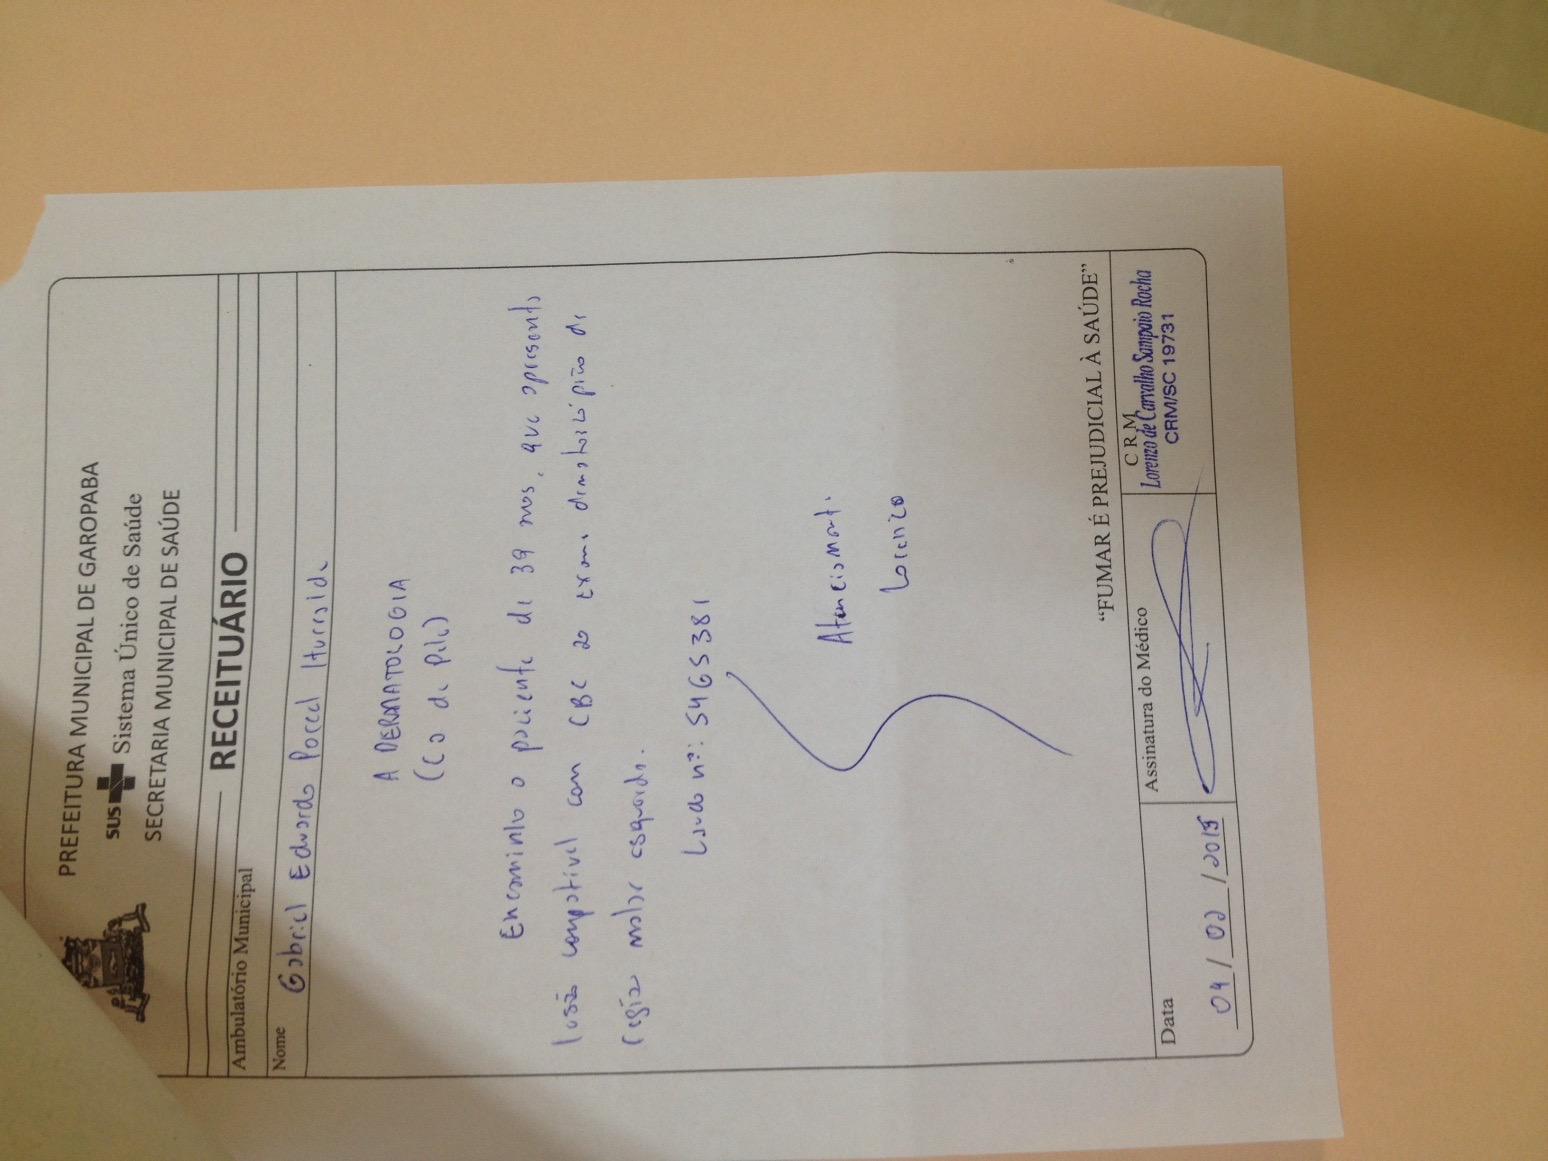 PREFEITURA MUNICIPAL DE GAROPABA
SUS Sistema Único de Saúde
SECRETARIA MUNICIPAL DE SAÚDE
RECEITUÁRIO
Ambulatório Municipal
Nome Gabriel Eduardo Porcel Iturralde
A DERMATOLOGIA
(Ca de Pele)
Encaminho o paciente de 39 anos, que apresenta
lesão compatível com CBC ao exame dermatoscópico de
região malar esquerda.
Laudo nº: 5465381
Atenciosamente.
Lorenzo
"FUMAR É PREJUDICIAL À SAÚDE"
Data
04 / 02 / 2015
Assinatura do Médico
C R M
Lorenzo de Carvalho Sampaio Rocha
CRM/SC 19731